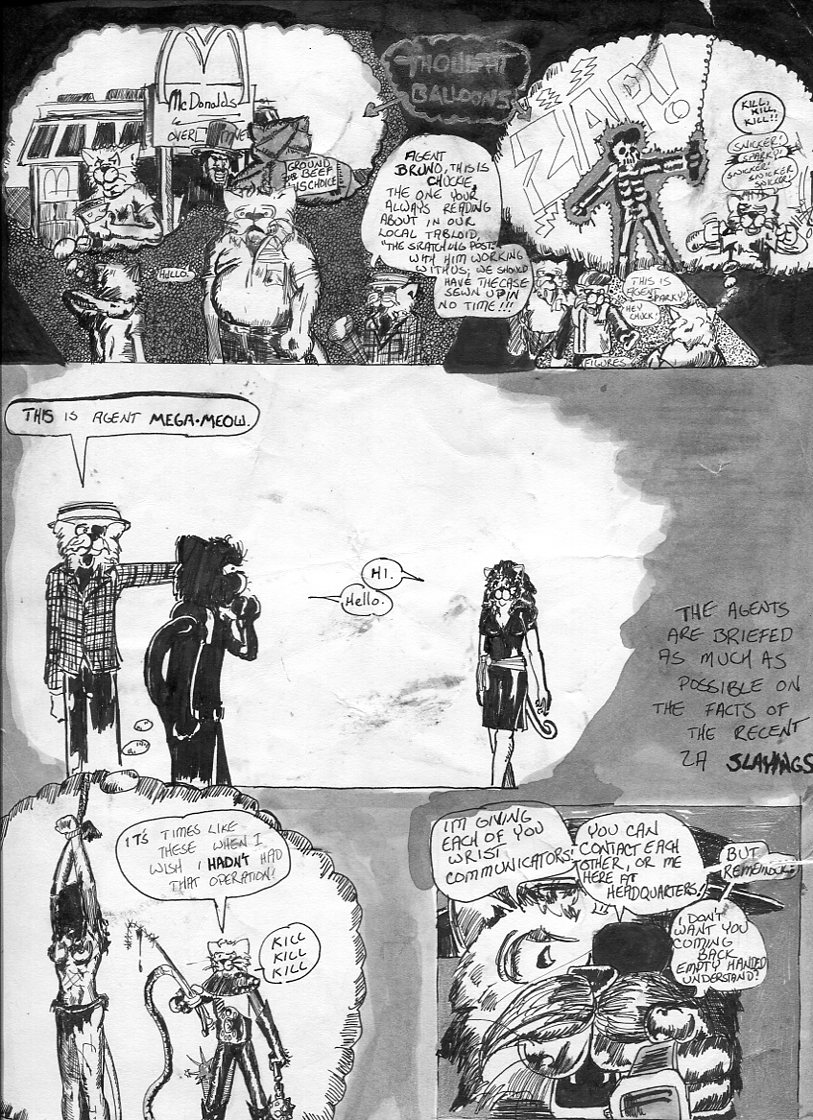 THOUGHT
BALLOONS
McDonalds
OVER
GROUND
BEEF
HIS CHOICE
HELLO.
AGENT
BRUNO, THIS IS
CHUCKE,
THE ONE YOUR
ALWAYS READING
ABOUT IN OUR
LOCAL TABLOID,
"THE SRATCHING POST."
WITH HIM WORKING
WITH US; WE SHOULD
HAVE THE CASE
SEWN UP IN
NO TIME!!!
ZAP!
KILL,
KILL,
KILL!!
SNICKER!
SPARKY!
SNICKER
SNICKER
SNICKER!
THIS IS
AGENT
SPARKY.
HEY
CHUCK!
FIGURES.
THIS IS AGENT MEGA·MEOW.
HI.
Hello.
THE AGENTS
ARE BRIEFED
AS MUCH AS
POSSIBLE ON
THE FACTS OF
THE RECENT
ZA SLAYINGS
IT'S TIMES LIKE
THESE WHEN I
WISH I HADN'T HAD
THAT OPERATION!
KILL
KILL
KILL
I'M GIVING
EACH OF YOU
WRIST
COMMUNICATORS!
YOU CAN
CONTACT EACH
OTHER, OR ME
HERE AT
HEADQUARTERS!
BUT
I DON'T
WANT YOU
COMING
BACK
EMPTY HANDED
UNDERSTAND!